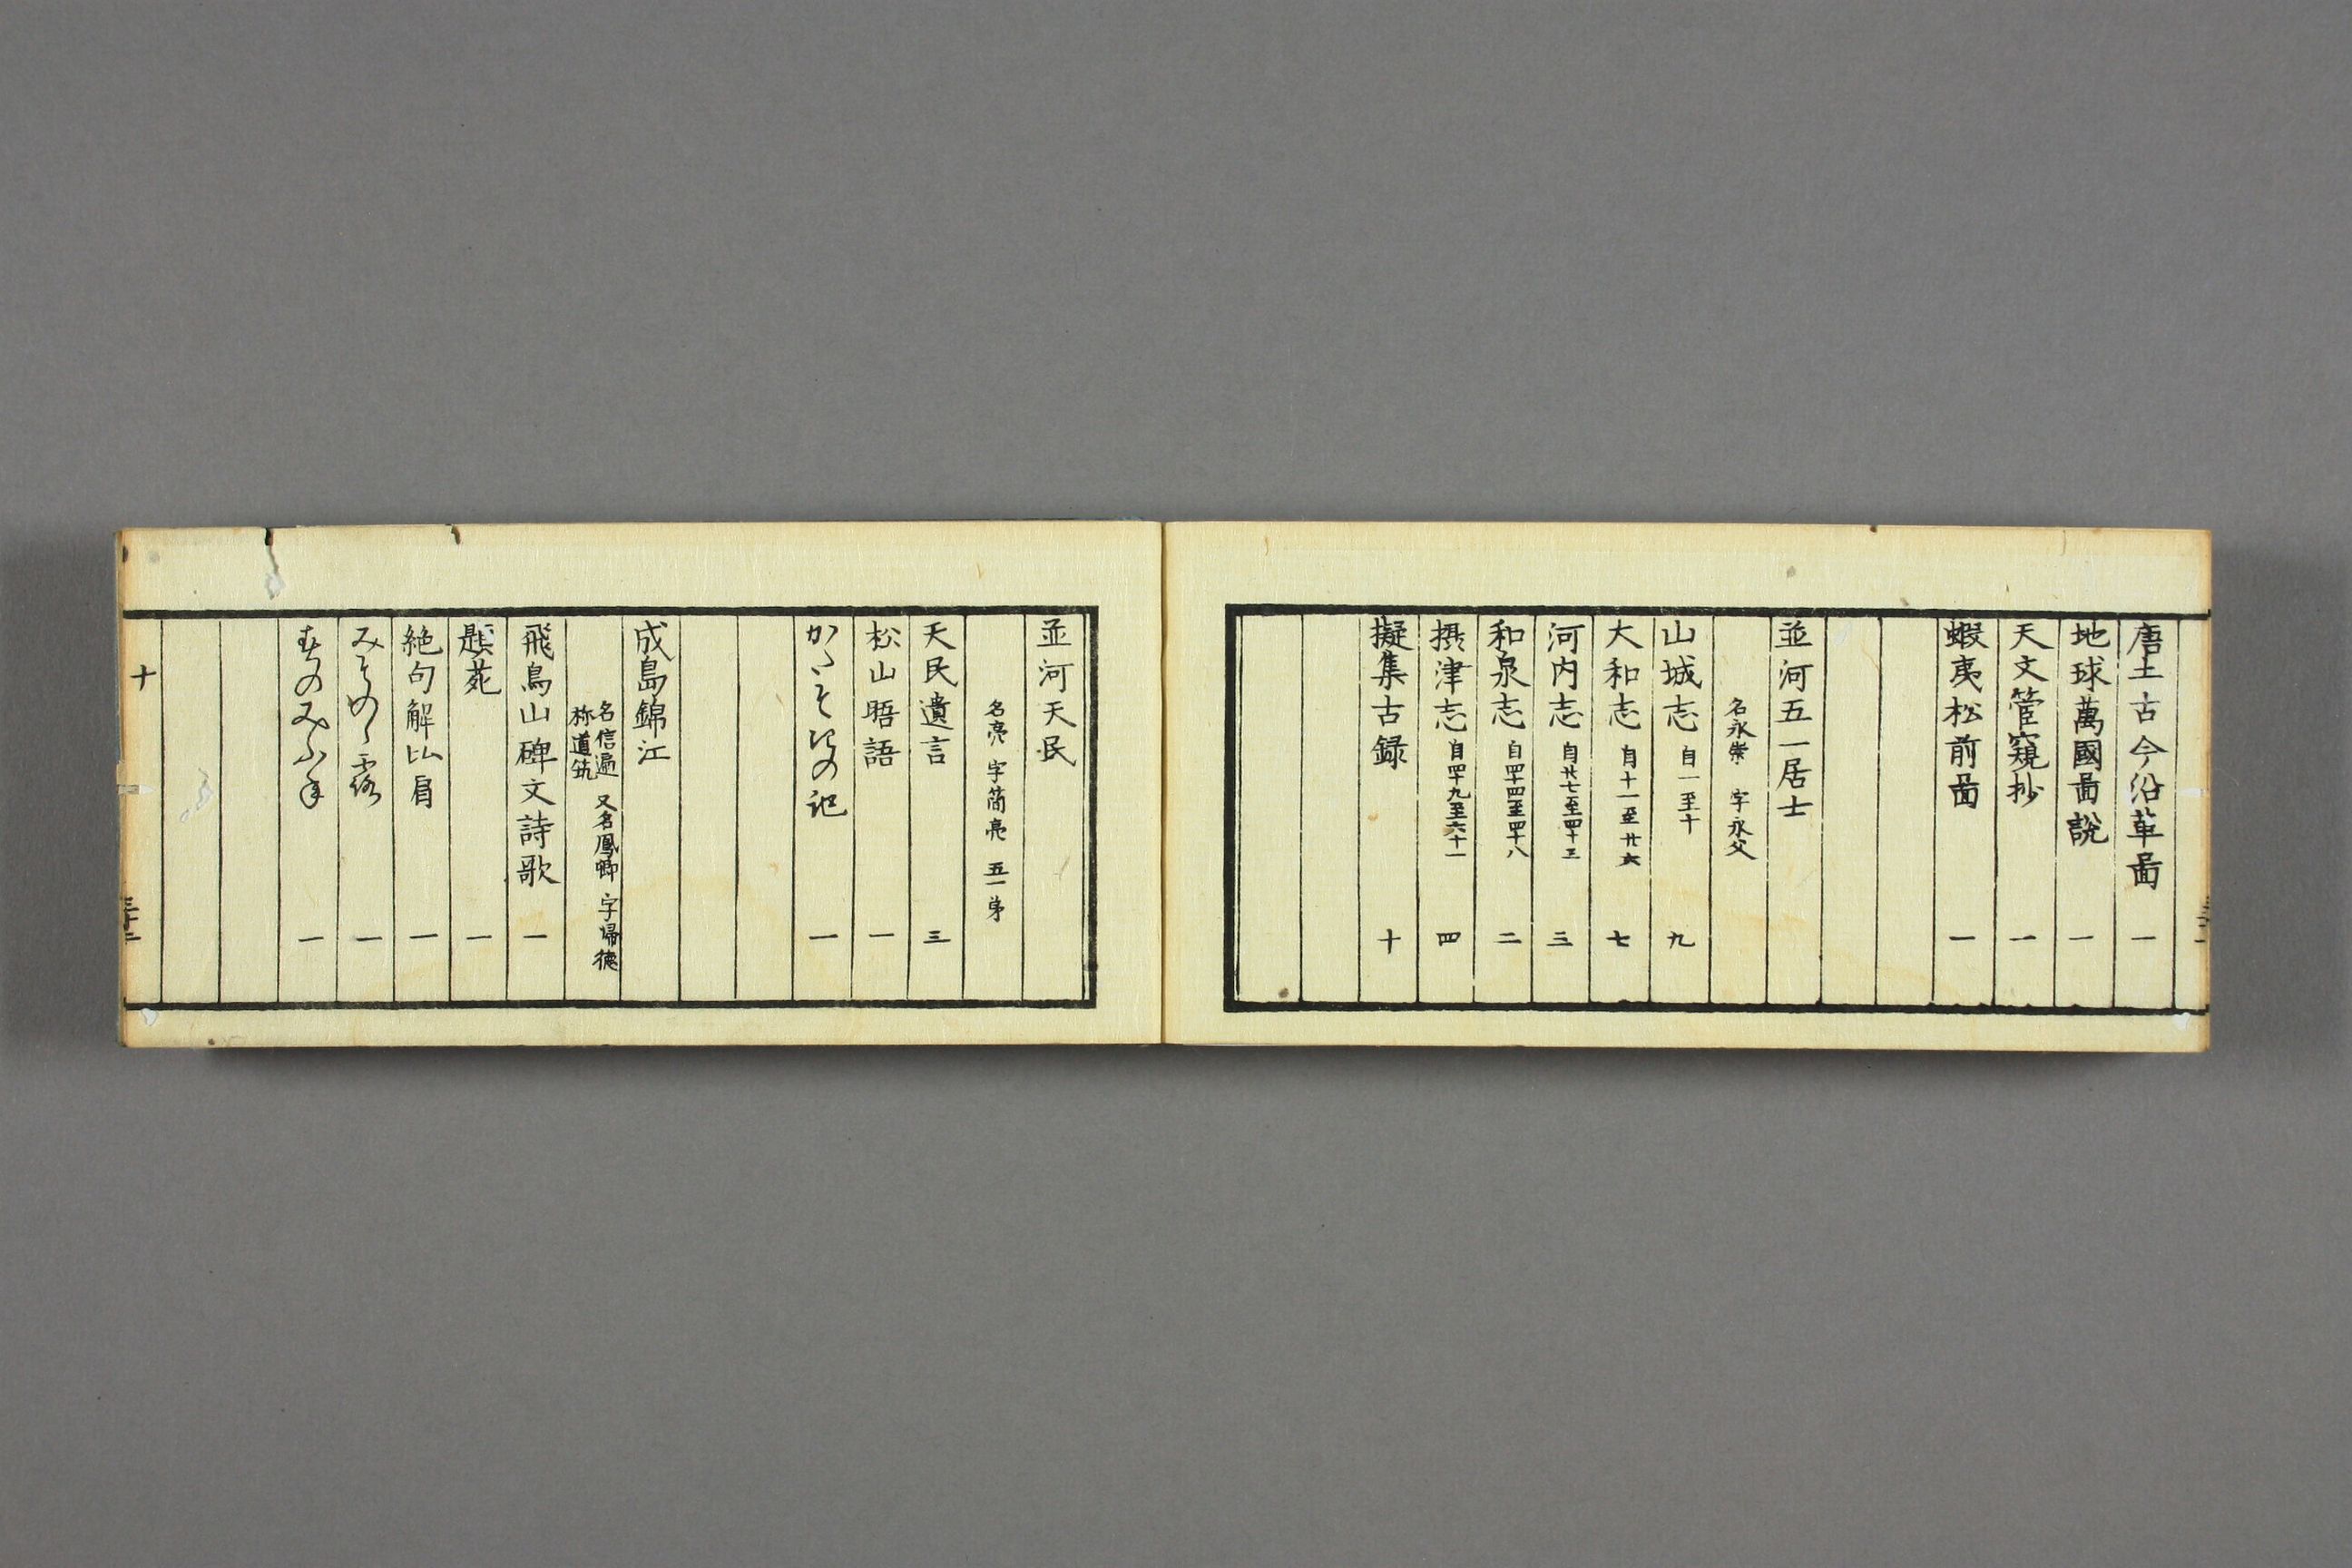 唐土古今沿革啚 一
地球萬國啚說 一
天文管窺抄 一
蝦夷松前啚 一
並河五一居士
名永崇 字永父
山城志 自一至十 九
大和志 自十一至廿六 七
河内志 自廿七至四十三 三
和泉志 自四十四至四十八 二
摂津志 自四十九至六十一 四
擬集古録 十
並河天民
名亮 字簡亮 五一弟
天民遺言 三
松山晤語 一
かたそきの記 一
成島錦江
名信遍 又名鳳卿 字歸德
称道筑
飛鳥山碑文詩歌 一
苑 一
絶句解比肩 一
みその 一
のみふね 一
十